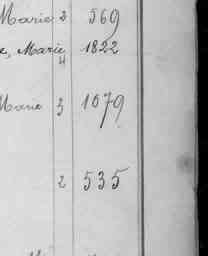 Marie 2 569
e, Marie 4 1822
Marie 3 1079
2 535